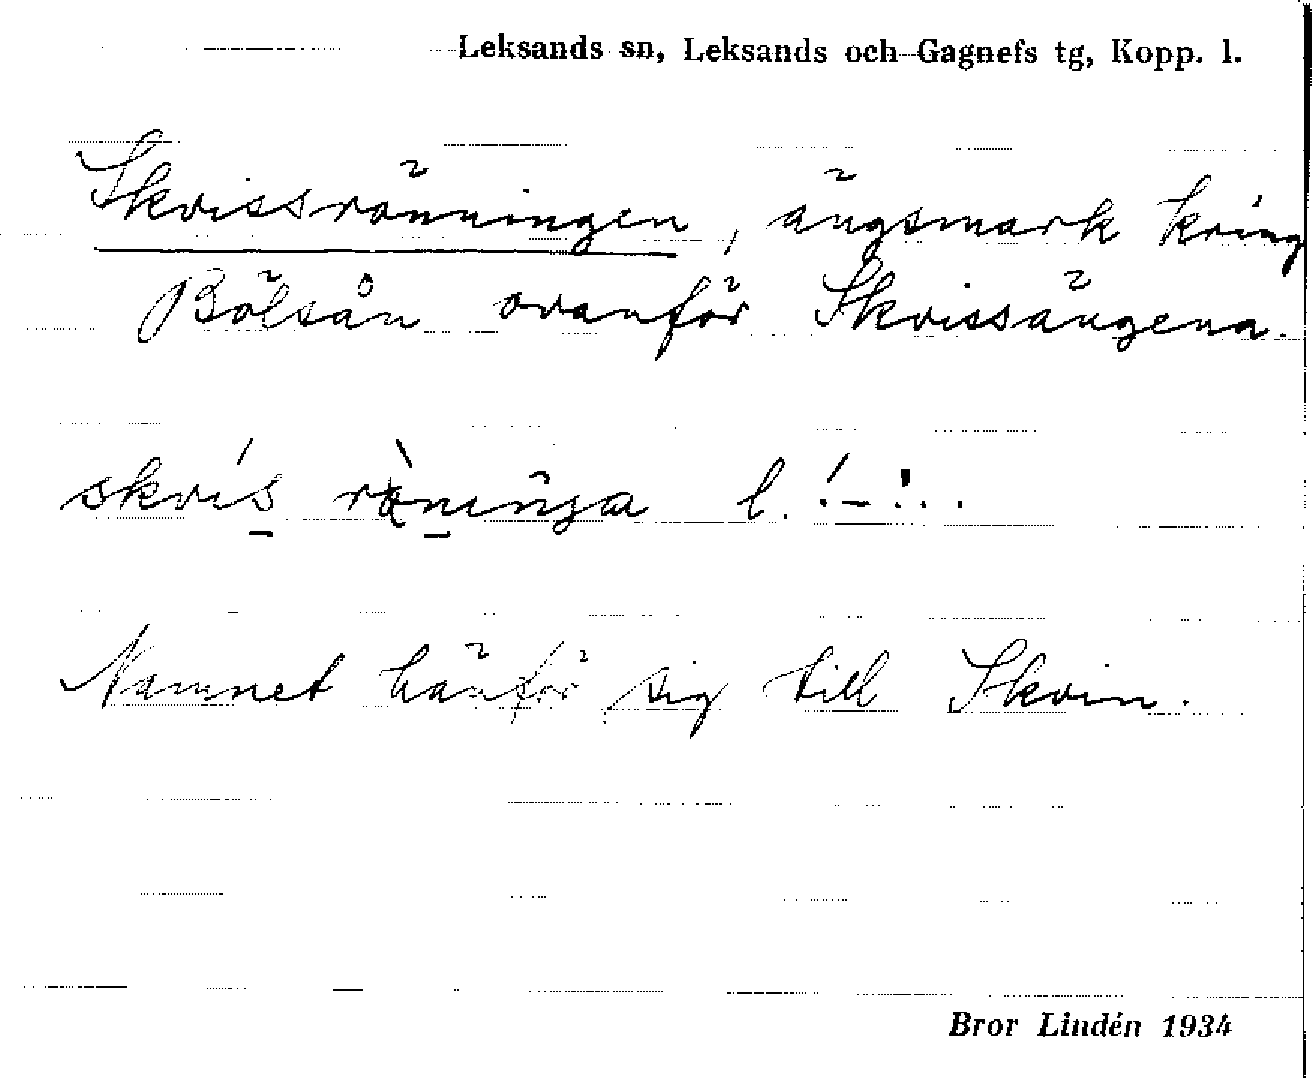 Leksands sn, Leksands och Gagnefs tg, Kopp. l.
Skvissrönningen, ängsmark kring
Bölsån ovanför Skvissängena.
skvís l. ′–′..
Namnet hänför sig till Skvin.
Bror Lindén 1934